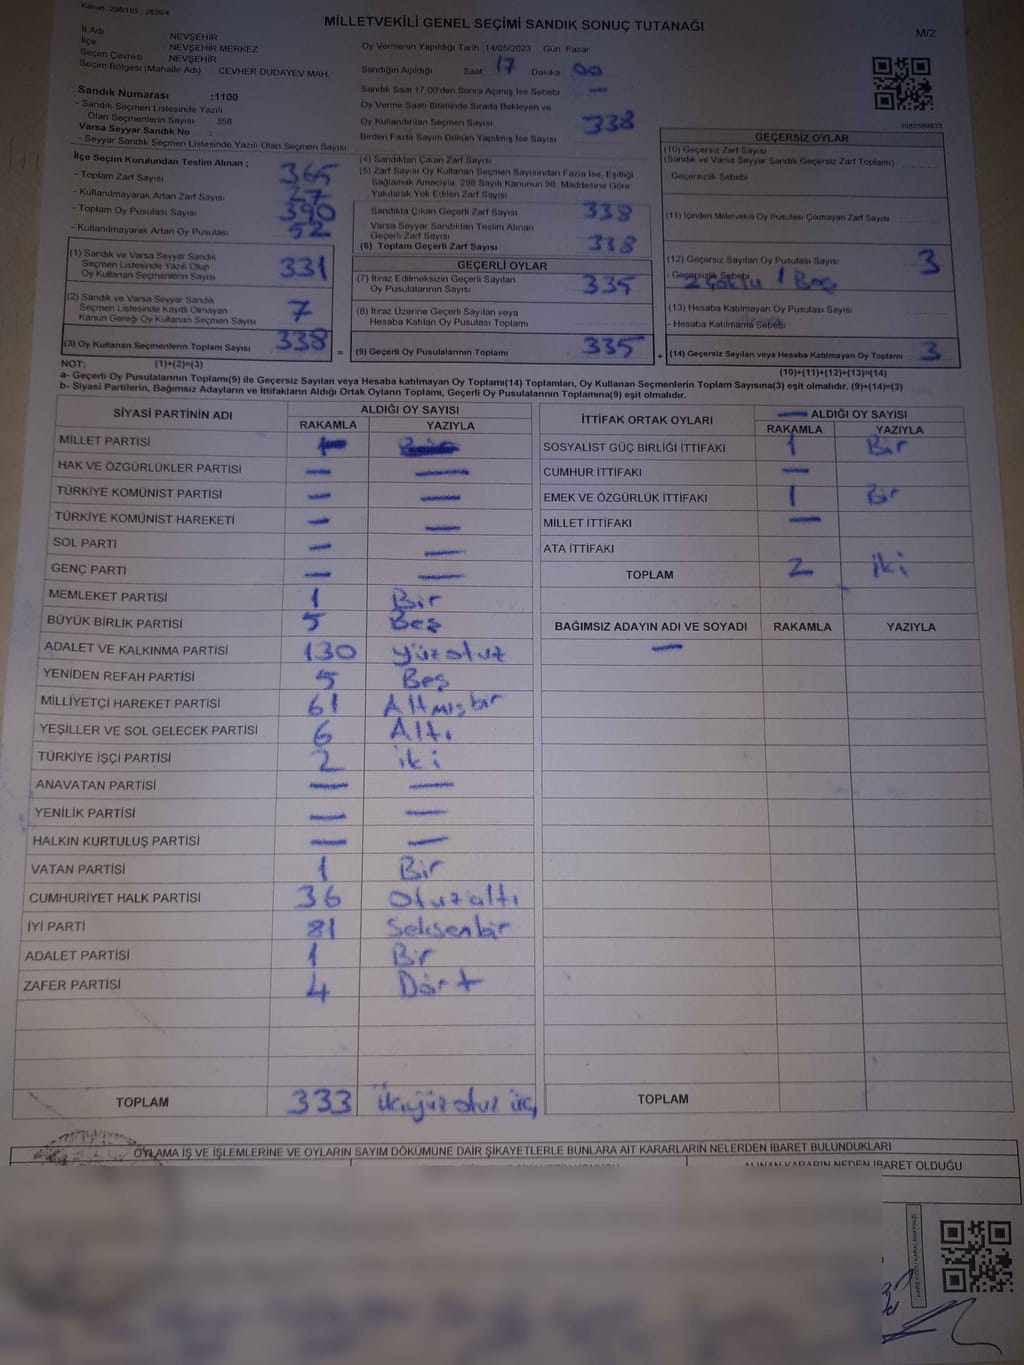 Kanun, 298/105, 2839/4
MİLLETVEKİLİ GENEL SEÇİMİ SANDIK SONUÇ TUTANAĞI
M/2
İl Adı NEVŞEHİR
İlçe NEVŞEHİR MERKEZ
Seçim Çevresi NEVŞEHİR
Seçim Bölgesi (Mahalle Adı) CEVHER DUDAYEV MAH.
Oy Vermenin Yapıldığı Tarih :14/05/2023 Gün: Pazar
Sandığın Açıldığı Saat: 17 Dakika: 00
Sandık Saat 17.00'den Sonra Açılmış İse Sebebi —
Oy Verme Saati Bitiminde Sırada Bekleyen ve
Oy Kullandırılan Seçmen Sayısı 338
Birden Fazla Sayım Döküm Yapılmış İse Sayısı
Sandık Numarası :1100
- Sandık Seçmen Listesinde Yazılı
Olan Seçmenlerin Sayısı 358
Varsa Seyyar Sandık No :
- Seyyar Sandık Seçmen Listesinde Yazılı Olan Seçmen Sayısı
İlçe Seçim Kurulundan Teslim Alınan ;
- Toplam Zarf Sayısı 365
- Kullanılmayarak Artan Zarf Sayısı 27
- Toplam Oy Pusulası Sayısı 390
- Kullanılmayarak Artan Oy Pusulası 52
(1) Sandık ve Varsa Seyyar Sandık
Seçmen Listesinde Yazılı Olup
Oy Kullanan Seçmenlerin Sayısı 331
(2) Sandık ve Varsa Seyyar Sandık
Seçmen Listesinde Kayıtlı Olmayan
Kanun Gereği Oy Kullanan Seçmen Sayısı 7
(3) Oy Kullanan Seçmenlerin Toplam Sayısı 338
(4) Sandıktan Çıkan Zarf Sayısı
(5) Zarf Sayısı Oy Kullanan Seçmen Sayısından Fazla İse, Eşitliği
Sağlamak Amacıyla, 298 Sayılı Kanunun 98. Maddesine Göre
Yakılarak Yok Edilen Zarf Sayısı
Sandıkta Çıkan Geçerli Zarf Sayısı 338
Varsa Seyyar Sandıktan Teslim Alınan
Geçerli Zarf Sayısı
(6) Toplam Geçerli Zarf Sayısı 338
GEÇERLİ OYLAR
(7) İtiraz Edilmeksizin Geçerli Sayılan
Oy Pusulalarının Sayısı 335
(8) İtiraz Üzerine Geçerli Sayılan veya
Hesaba Katılan Oy Pusulası Toplamı
= (9) Geçerli Oy Pusulalarının Toplamı 335
1083599933
GEÇERSİZ OYLAR
(10) Geçersiz Zarf Sayısı
(Sandık ve Varsa Seyyar Sandık Geçersiz Zarf Toplamı)
- Geçersizlik Sebebi
(11) İçinden Milletvekili Oy Pusulası Çıkmayan Zarf Sayısı
(12) Geçersiz Sayılan Oy Pusulası Sayısı 3
- Geçersizlik Sebebi 1 Boş
(13) Hesaba Katılmayan Oy Pusulası Sayısı
- Hesaba Katılmama Sebebi
+ (14) Geçersiz Sayılan veya Hesaba Katılmayan Oy Toplamı 3
NOT: (1)+(2)=(3) (10)+(11)+(12)+(13)=(14)
a- Geçerli Oy Pusulalarının Toplamı(9) ile Geçersiz Sayılan veya Hesaba katılmayan Oy Toplamı(14) Toplamları, Oy Kullanan Seçmenlerin Toplam Sayısına(3) eşit olmalıdır. (9)+(14)=(3)
b- Siyasi Partilerin, Bağımsız Adayların ve İttifakların Aldığı Ortak Oyların Toplamı, Geçerli Oy Pusulalarının Toplamına(9) eşit olmalıdır.
SİYASİ PARTİNİN ADI ALDIĞI OY SAYISI
RAKAMLA YAZIYLA
MİLLET PARTİSİ
HAK VE ÖZGÜRLÜKLER PARTİSİ — —
TÜRKİYE KOMÜNİST PARTİSİ — —
TÜRKİYE KOMÜNİST HAREKETİ — —
SOL PARTİ — —
GENÇ PARTİ — —
MEMLEKET PARTİSİ 1 Bir
BÜYÜK BİRLİK PARTİSİ 5 Beş
ADALET VE KALKINMA PARTİSİ 130 yüzotuz
YENİDEN REFAH PARTİSİ 5 Beş
MİLLİYETÇİ HAREKET PARTİSİ 61 Altmışbir
YEŞİLLER VE SOL GELECEK PARTİSİ 6 Altı
TÜRKİYE İŞÇİ PARTİSİ 2 iki
ANAVATAN PARTİSİ — —
YENİLİK PARTİSİ — —
HALKIN KURTULUŞ PARTİSİ — —
VATAN PARTİSİ 1 Bir
CUMHURİYET HALK PARTİSİ 36 otuzaltı
İYİ PARTİ 81 Seksenbir
ADALET PARTİSİ 1 Bir
ZAFER PARTİSİ 4 Dört
TOPLAM 333 Üçyüz otuz üç
İTTİFAK ORTAK OYLARI ALDIĞI OY SAYISI
RAKAMLA YAZIYLA
SOSYALİST GÜÇ BİRLİĞİ İTTİFAKI 1 Bir
CUMHUR İTTİFAKI —
EMEK VE ÖZGÜRLÜK İTTİFAKI 1 Bir
MİLLET İTTİFAKI —
ATA İTTİFAKI
TOPLAM 2 iki
BAĞIMSIZ ADAYIN ADI VE SOYADI RAKAMLA YAZIYLA
—
TOPLAM
OYLAMA İŞ VE İŞLEMLERİNE VE OYLARIN SAYIM DÖKÜMÜNE DAİR ŞİKAYETLERLE BUNLARA AİT KARARLARIN NELERDEN İBARET BULUNDUKLARI
ALINAN KARARIN NEDEN İBARET OLDUĞU